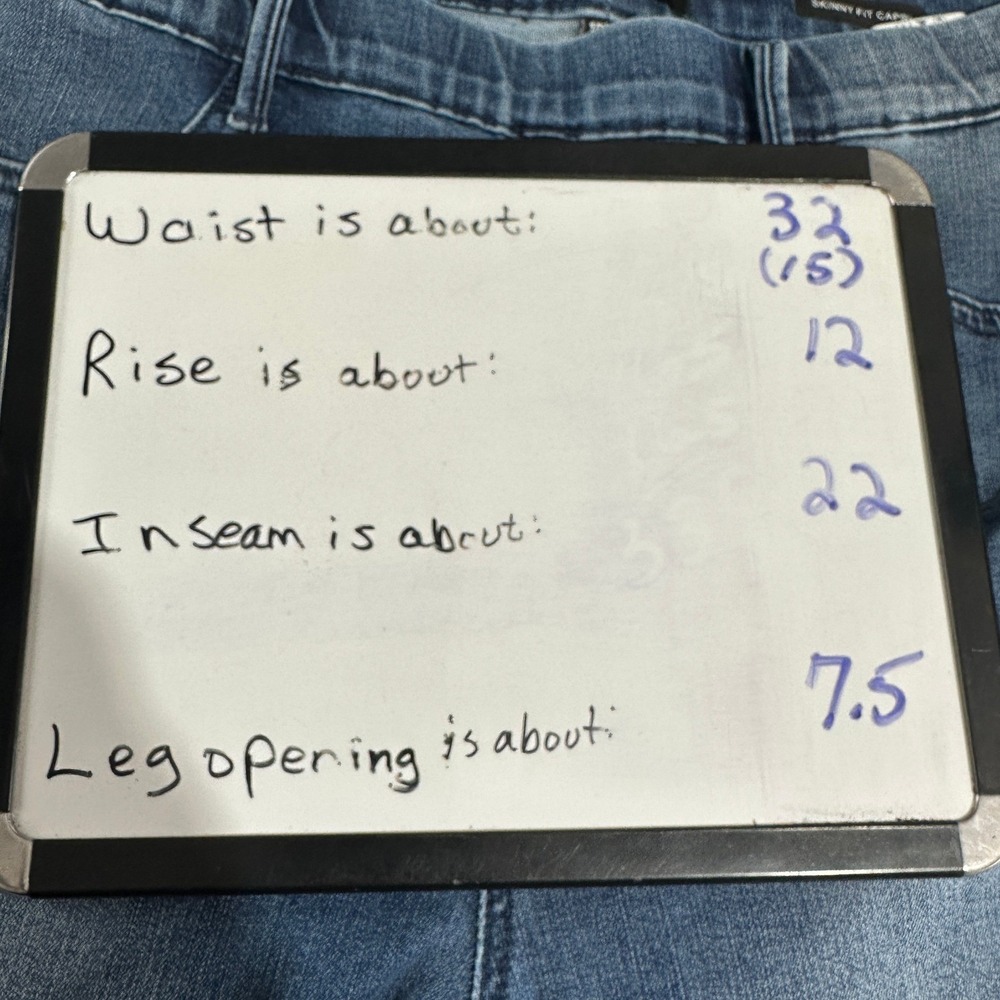 SKINNY FIT CAPRI
Waist is about: 32
(15)
Rise is about: 12
Inseam is about: 22
Leg opening is about: 7.5